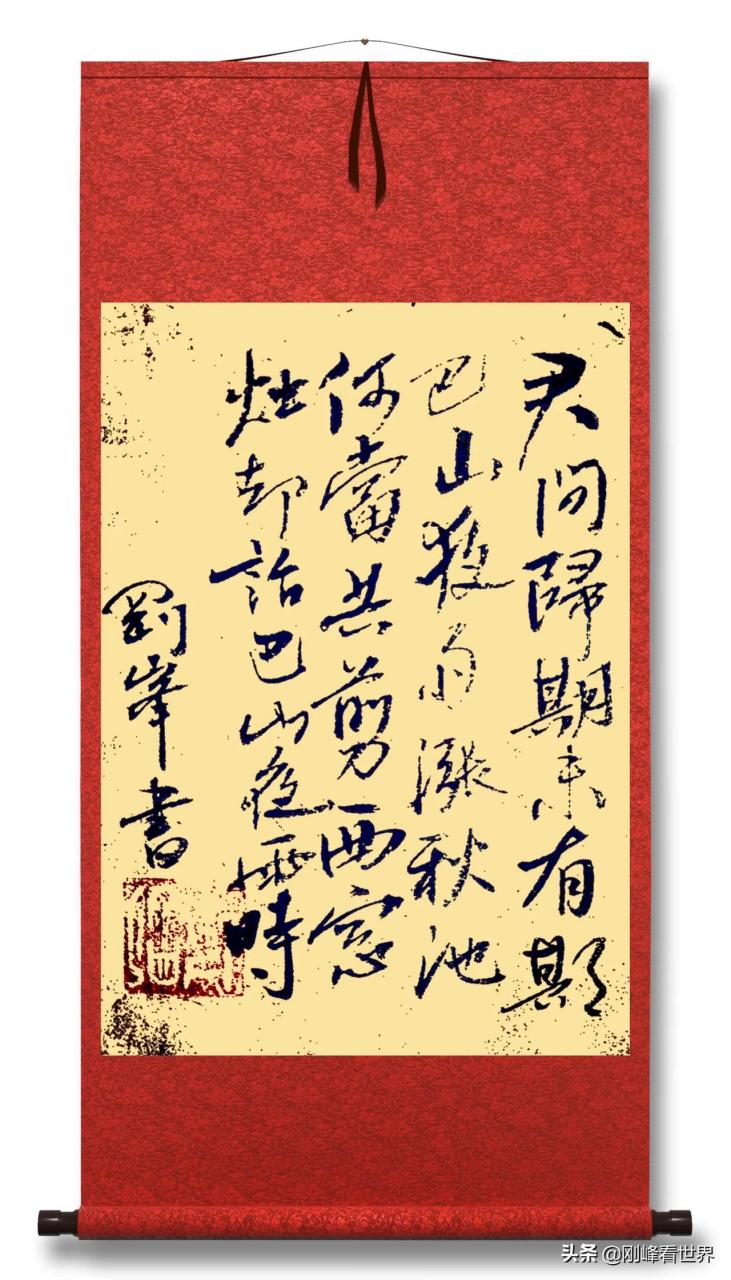 君問歸期未有期
巴山夜雨漲秋池
何當共剪西窓
烛却話巴山夜雨時
劉峯書
头条 @刚峰看世界